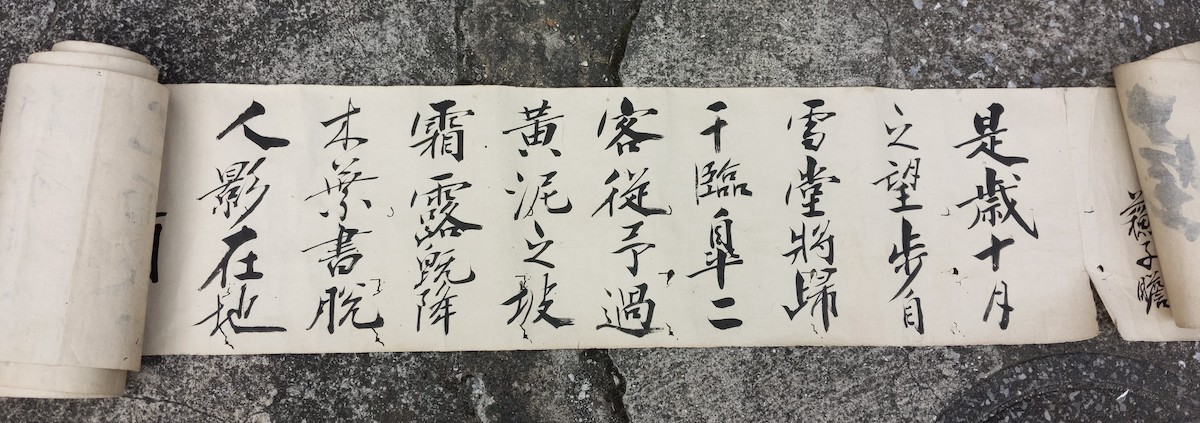 蘓子瞻
是歲十月
之望步自
雪堂將歸
于臨臯二
客從予過
黃泥之坡
霜露既降
木葉書脫
人影在地